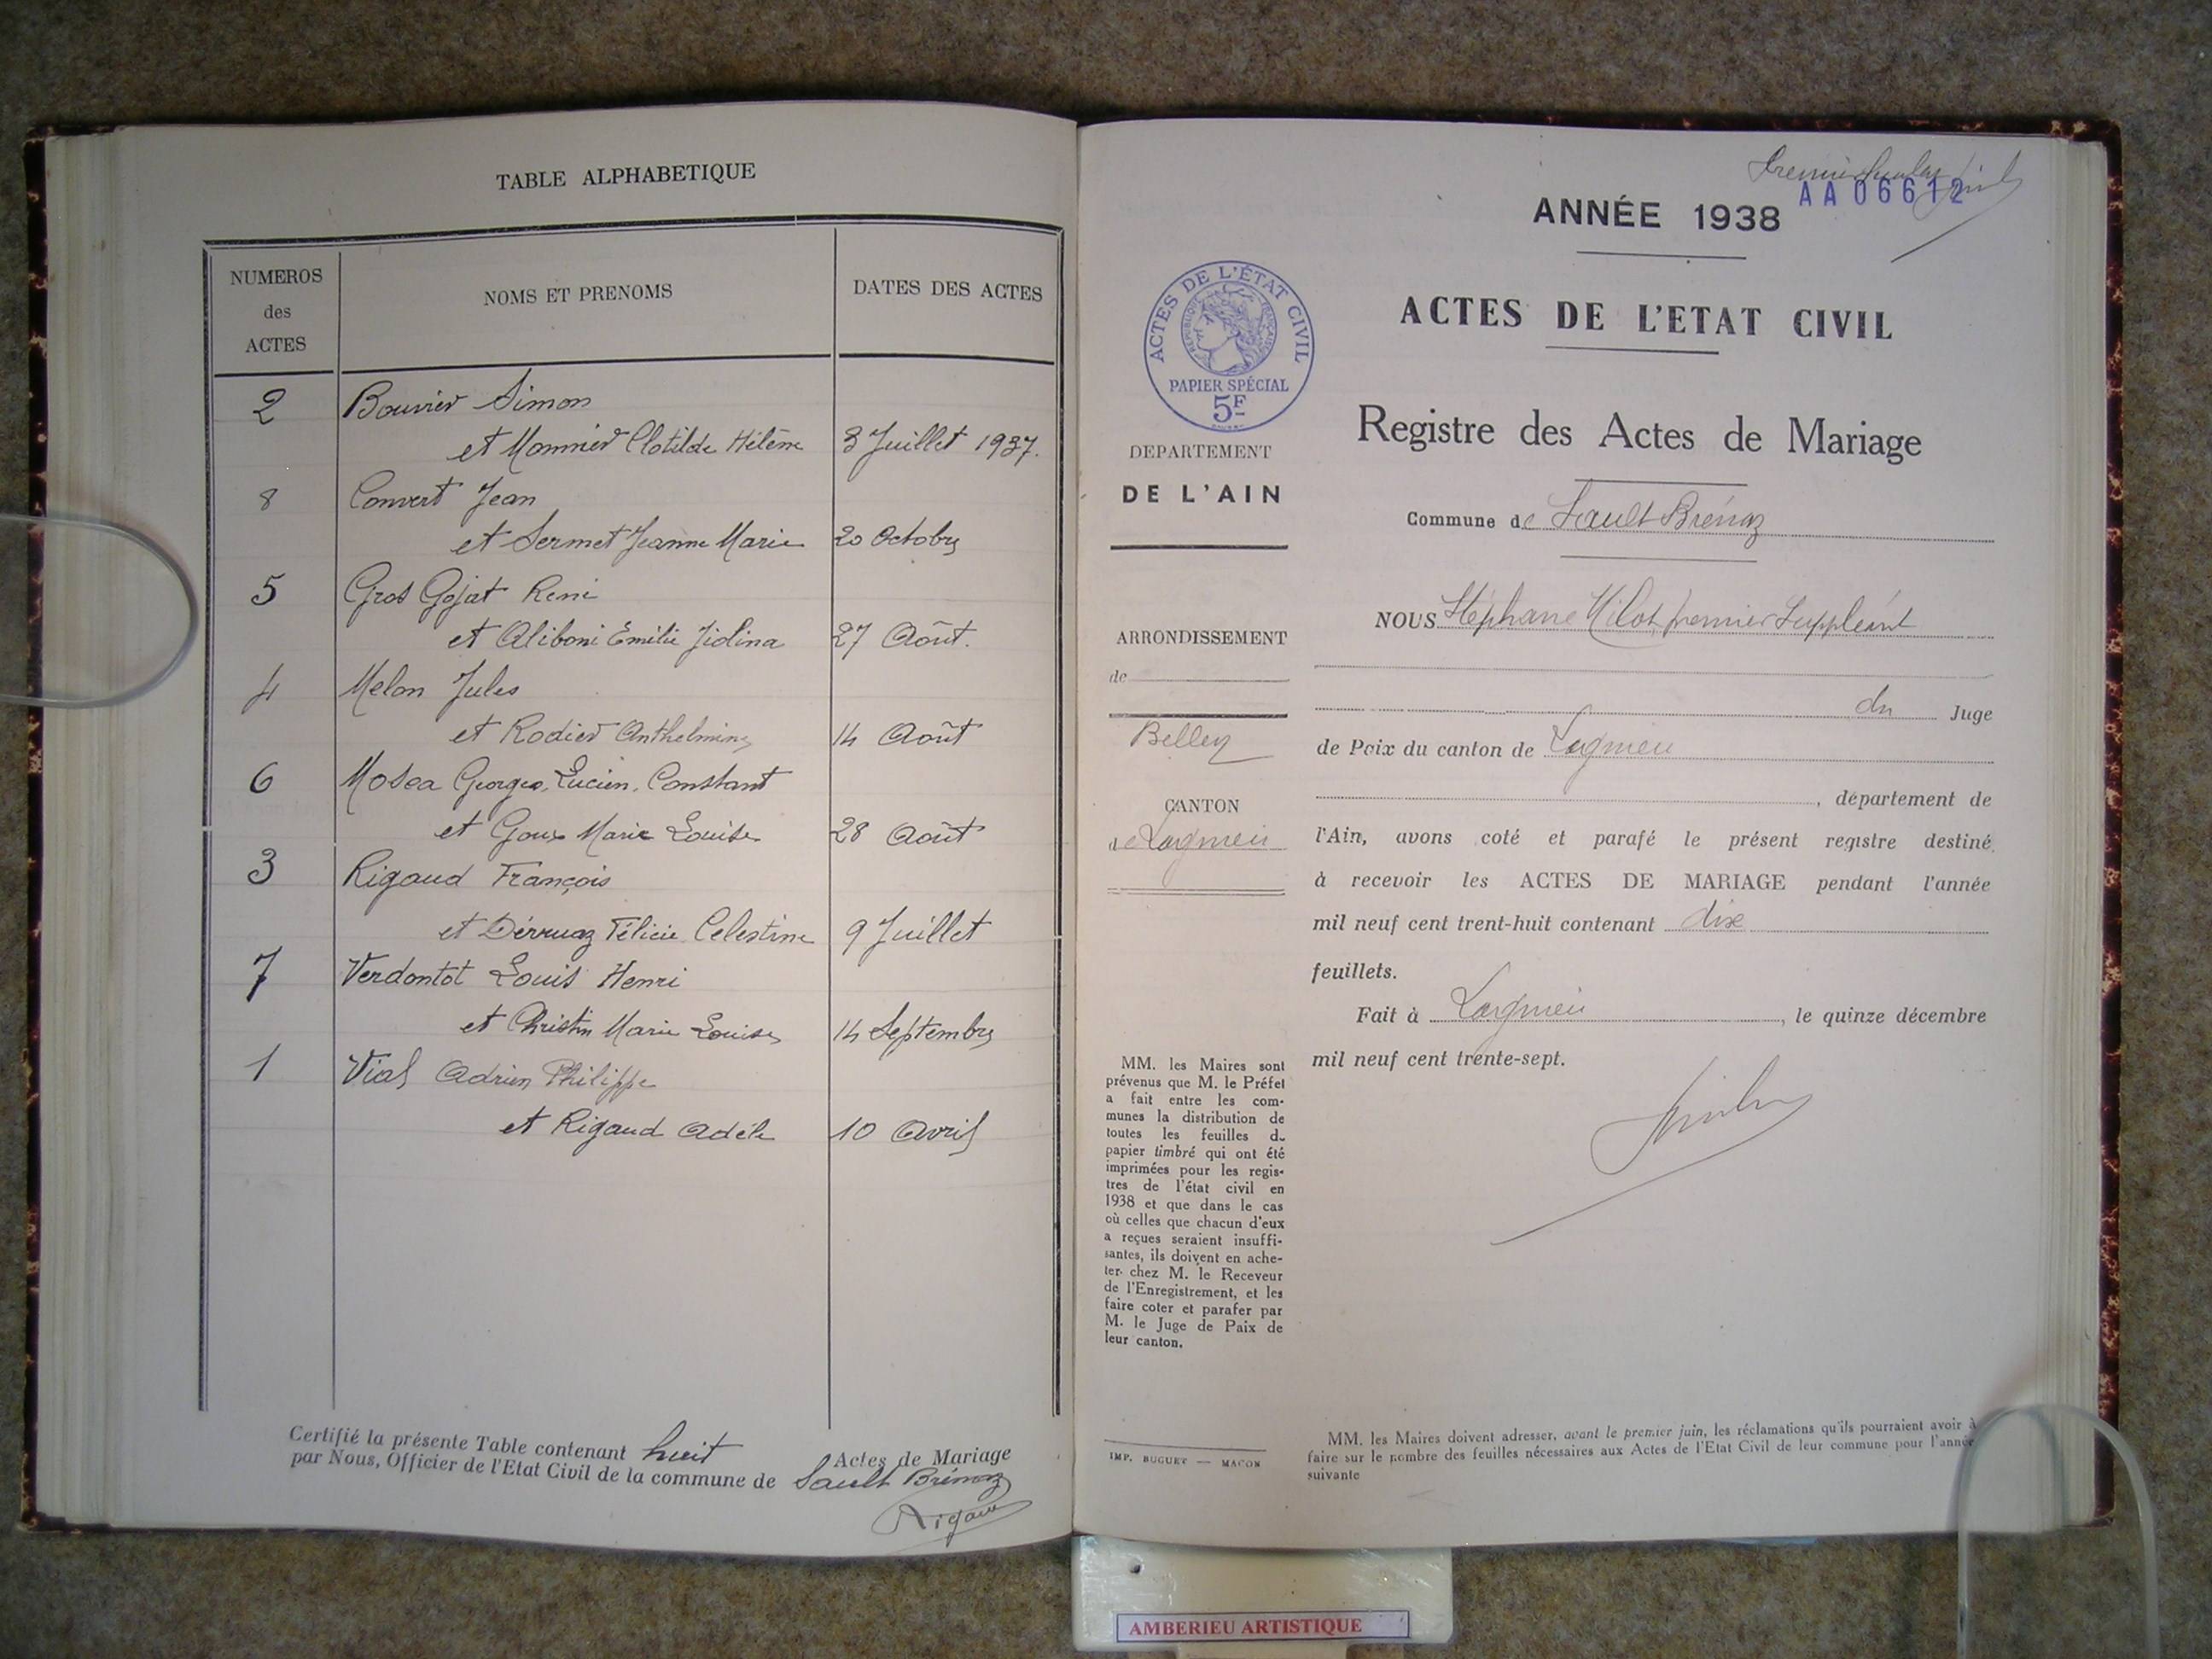 TABLE ALPHABETIQUE
NUMEROS
des
ACTES
NOMS ET PRENOMS
DATES DES ACTES
2 Bouvier Simon
et Monnier Clotilde Hélène 3 Juillet 1937.
8 Convert Jean
et Sermet Jeanne Marie 20 Octobre
5 Gros Gojat René
et Aliboni Emilie 27 Août.
4 Melon Jules
et Rodier Anthelmine 14 Août
6 Mosca Georges, Lucien, Constant
et Goux Marie Louise 28 Août
3 Rigaud François
et Dérruaz Félicie Celestine 9 Juillet
7 Verdontot Louis Henri
et Christin Marie Louise 14 Septembre
1 Vial Adrien Philippe
et Rigaud Adèle 10 Avril
Certifié la présente Table contenant huit Actes de Mariage
par Nous, Officier de l'Etat Civil de la commune de Sault Brénaz
Rigaud
AA06612
ANNÉE 1938
ACTES DE L'ÉTAT CIVIL
RÉPUBLIQUE FRANÇAISE
PAPIER SPÉCIAL
5F
ACTES DE L'ETAT CIVIL
Registre des Actes de Mariage
DEPARTEMENT
DE L'AIN
Commune de Sault Brénaz
ARRONDISSEMENT
de
Belley
CANTON
de Lagnieu
NOUS Stéphane Milot premier Suppléant
du Juge
de Paix du canton de Lagnieu
, département de
l'Ain, avons coté et parafé le présent registre destiné
à recevoir les ACTES DE MARIAGE pendant l'année
mil neuf cent trent-huit contenant dix
feuillets.
Fait à Lagnieu, le quinze décembre
mil neuf cent trente-sept.
MM. les Maires sont
prévenus que M. le Préfet
a fait entre les com-
munes la distribution de
toutes les feuilles de
papier timbré qui ont été
imprimées pour les regis-
tres de l'état civil en
1938 et que dans le cas
où celles que chacun d'eux
a reçues seraient insuffi-
santes, ils doivent en ache-
ter chez M. le Receveur
de l'Enregistrement, et les
faire coter et parafer par
M. le Juge de Paix de
leur canton.
IMP. BUGUET — MACON
MM. les Maires doivent adresser, avant le premier juin, les réclamations qu'ils pourraient avoir à
faire sur le nombre des feuilles nécessaires aux Actes de l'Etat Civil de leur commune pour l'année
suivante
AMBERIEU ARTISTIQUE